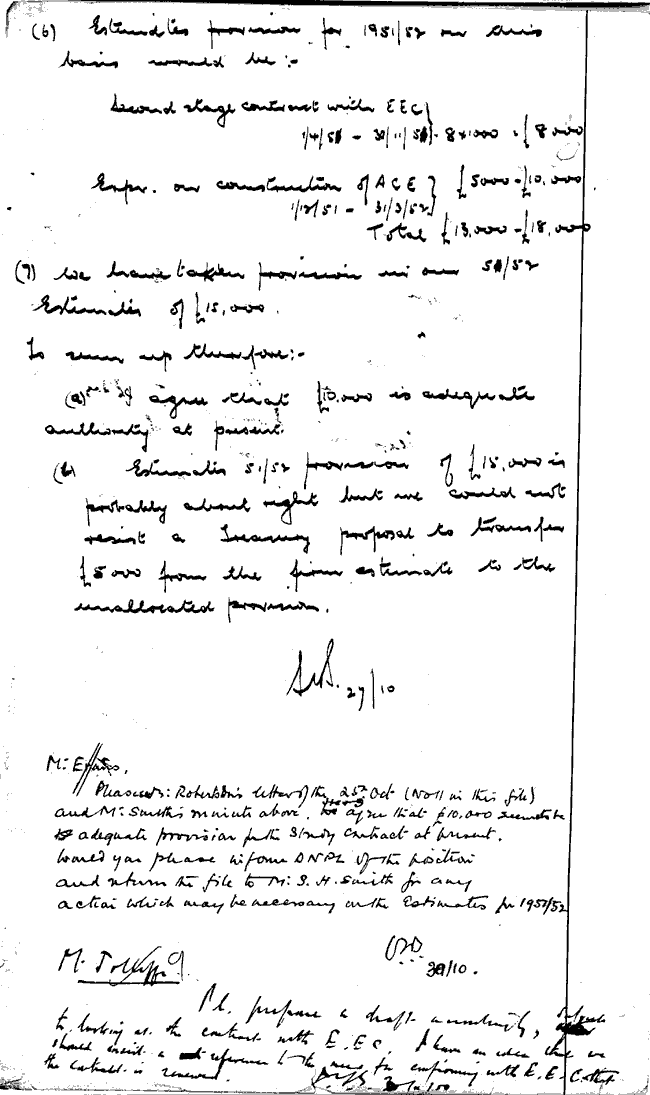 (6) Estimates provision for 1951/52 on this
basis would be :-
Second stage contract with EEC }
1/4/51 - 30/11/51 } - 8 x 1000 = £8,000
Expr. on construction of ACE } £5000 - £10,000
1/12/51 - 31/3/52 }
Total £13,000 - £18,000
(7) We have taken provision in our 51/52
Estimates of £15,000.
To sum up therefore:-
(a) agree that £10,000 is adequate
authority at present.
(b) Estimates 51/52 provision of £15,000 is
probably about right but we could not
resist a Treasury proposal to transfer
£5000 from the firm estimate to the
unallocated provision.
27/10
Mr. Evans,
Please see Mr. Robertson's letter of the 25th Oct (No 11 in this file)
and Mr. Smith's minute above. agree that £10,000 seems to be
adequate provision for the Study Contract at present.
Would you please inform DNPL of the position
and return the file to Mr. S. H. Smith for any
action which may be necessary on the Estimates for 1951/52
30/10.
Mr.
Pl. prepare a draft accordingly, subject
to looking at the contract with E.E.C. I have an idea that we
should insert a reference to the need for confirming with E.E.C. that
the contract is renewed.